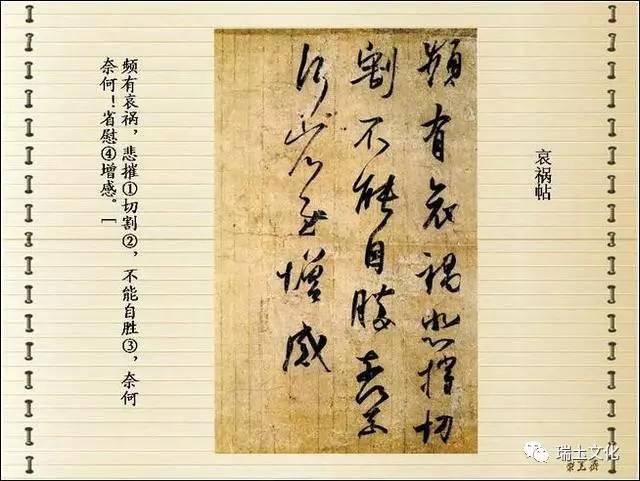 哀祸帖
頻有哀禍悲摧切
割不能自勝奈何
省慰增感
频有哀祸，悲摧①切割②，不能自胜③，奈何
奈何！省慰④增感。[
瑞土文化